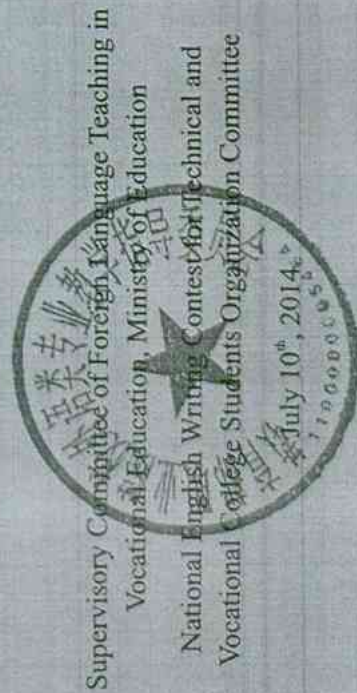 Supervisory Committee of Foreign Language Teaching in
Vocational Education, Ministry of Education
National English Writing Contest for Technical and
Vocational College Students Organization Committee
July 10th, 2014
外语类专业教